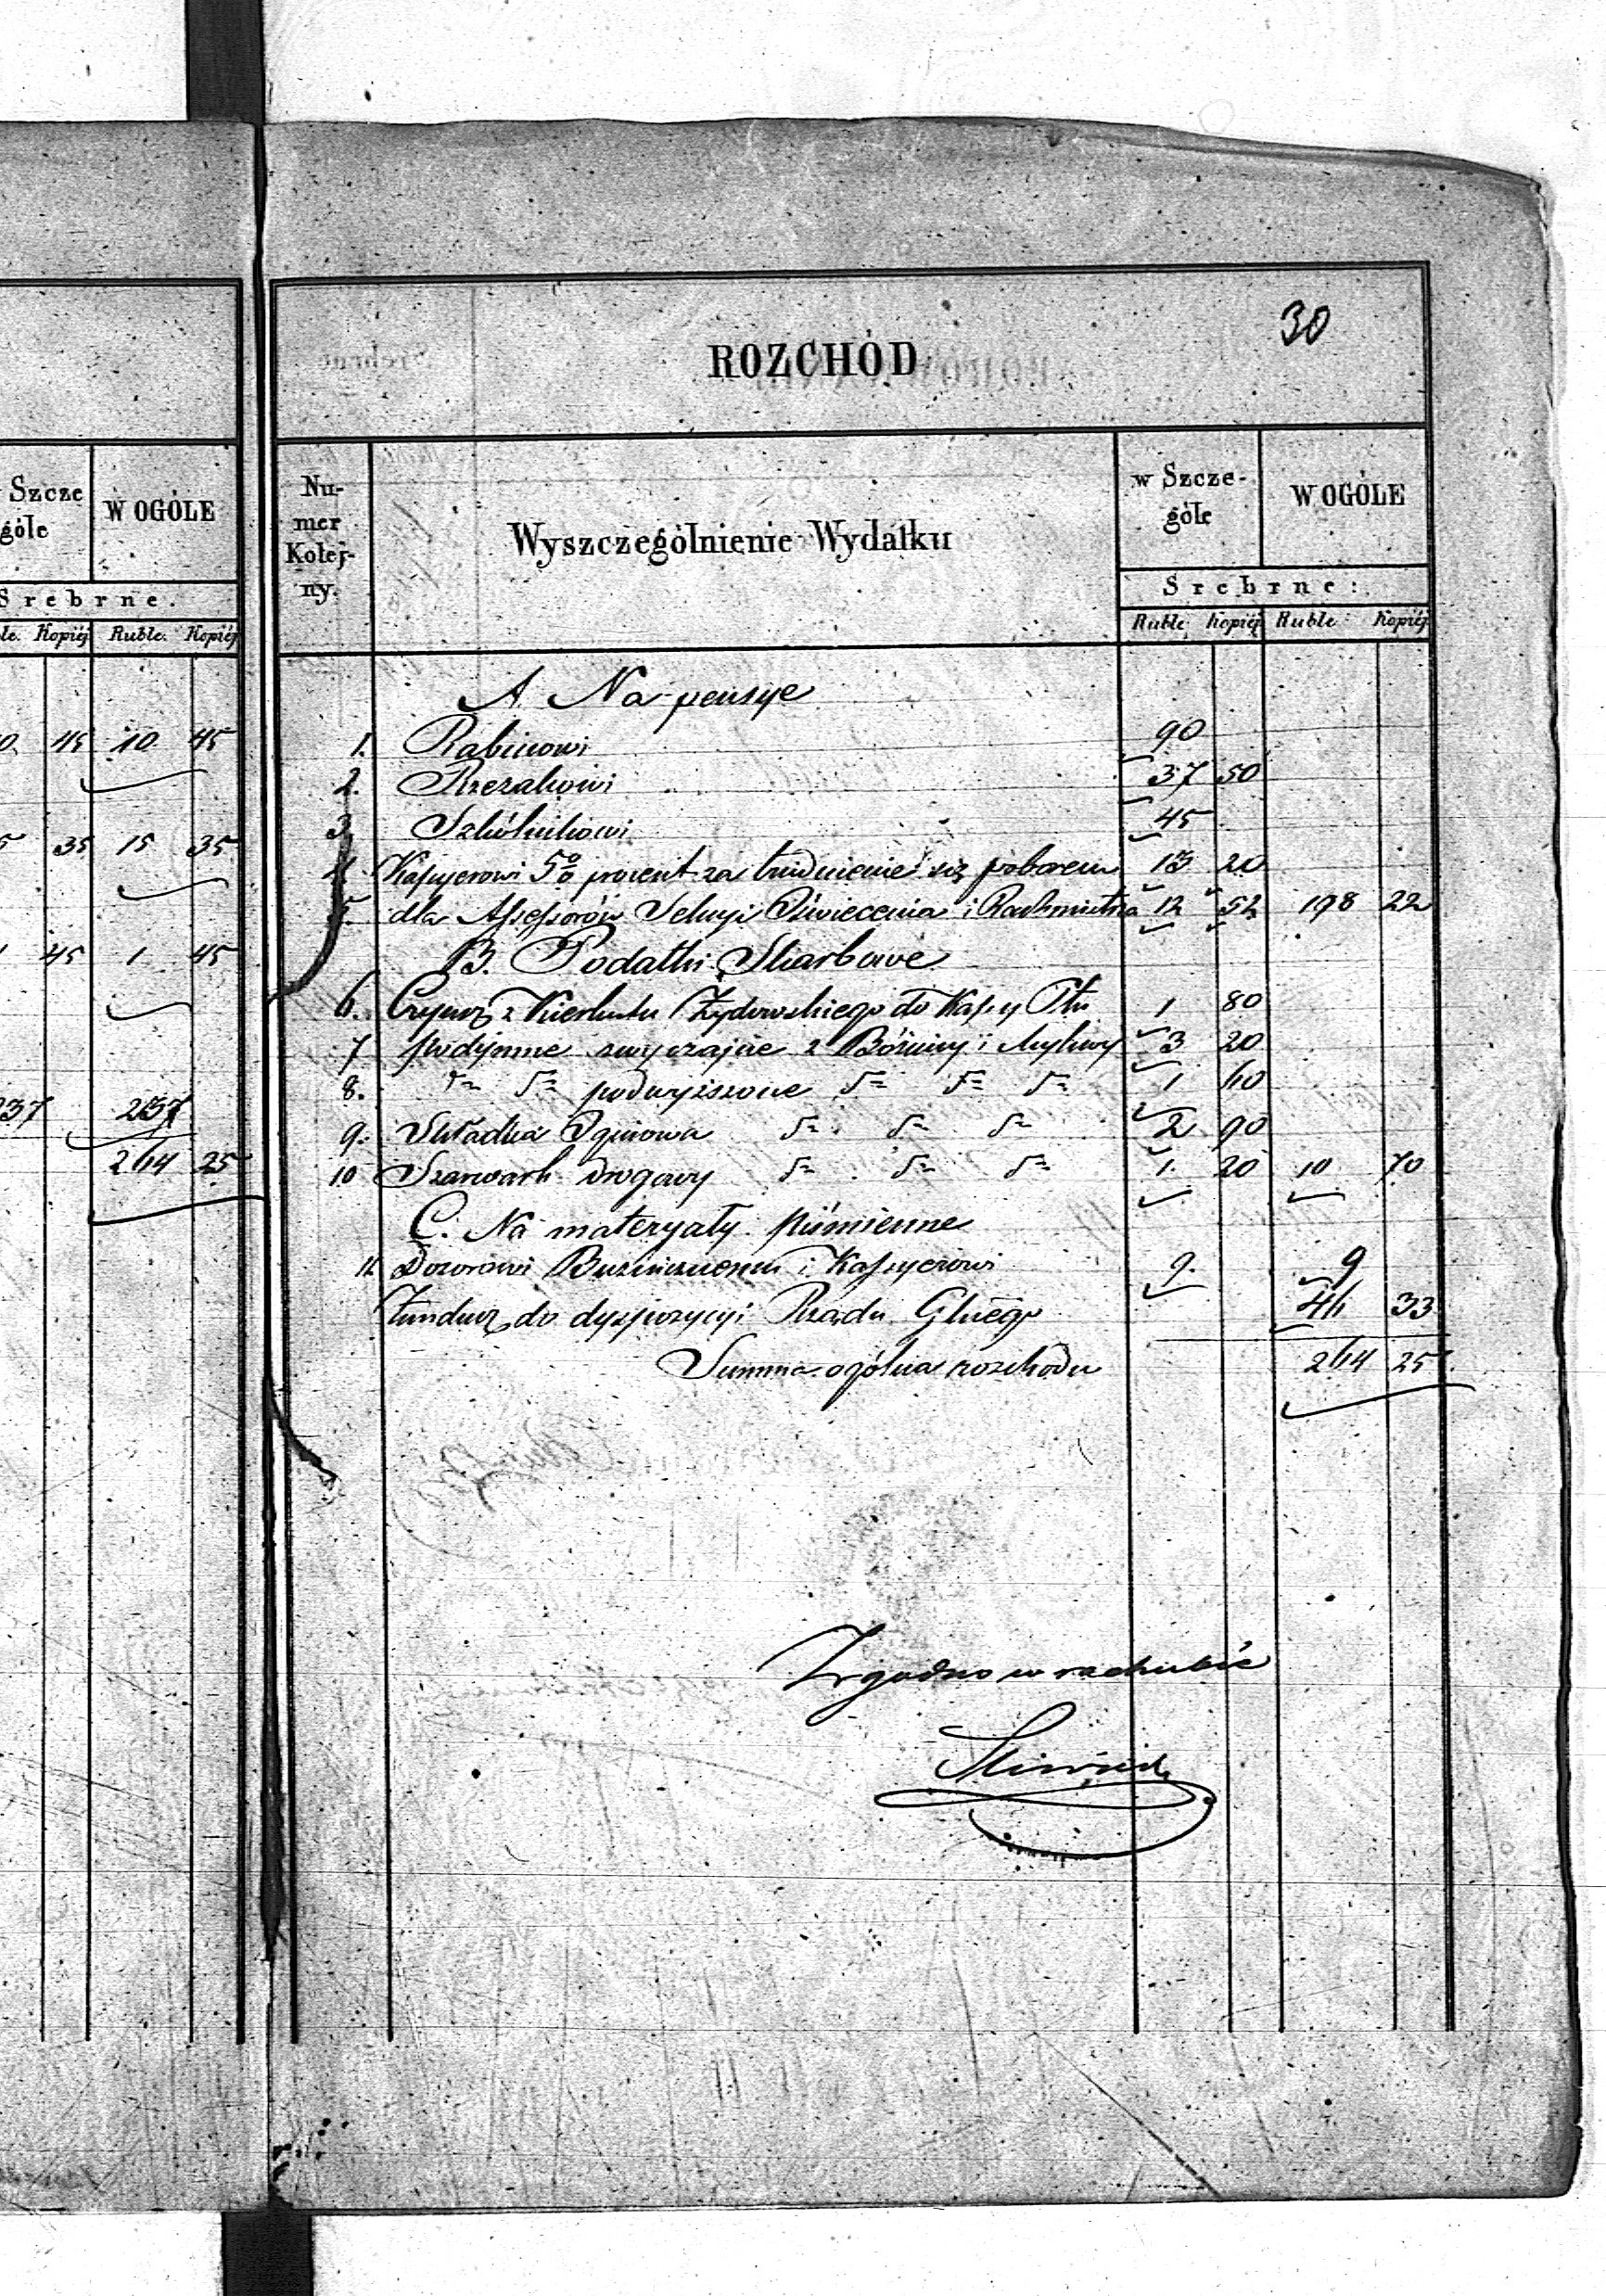 Szcze
góle
W OGÓLE
Srebrne.
Kopiéj Ruble. Kopiéj
45 10 45
35 15 35
45 1 45
237 237
264 25
30
ROZCHÓD
Numer Kolejny.
Wyszczególnienie Wydatku
w Szcze-
góle
W OGÓLE
Srebrne:
Ruble Kopiéj Ruble Kopiéj
A. Na pensye
1. Rabinowi 90
2. Rzezakowi 37 50
3. Szkólnikowi 45
4. Kassyerowi 5% procent za trudnienie się poborem 13 20
5. dla Assessorów Sekcyi Oświecenia i Rachmistrza 12 52 198 22
B. Podatki Skarbowe
6. Czynsz z Kierkutu Żydowskiego do Kassy 1 80
7 podymne zwyczajne z Bóżnicy i Mykwy 3 20
8. podwyższone 1 60
9. Składka Ogniowa 2 90
10 Szarwark drogowy 1 20 10 70
C. Na materyały piśmienne
11. Dozorowi Bużnicznemu i Kassyerowi 9. 9
Fundusz do dyspozycyi Rządu Głnego 46 33
Summa ogólna rozchodu 264 25
Zgodno w rachubie